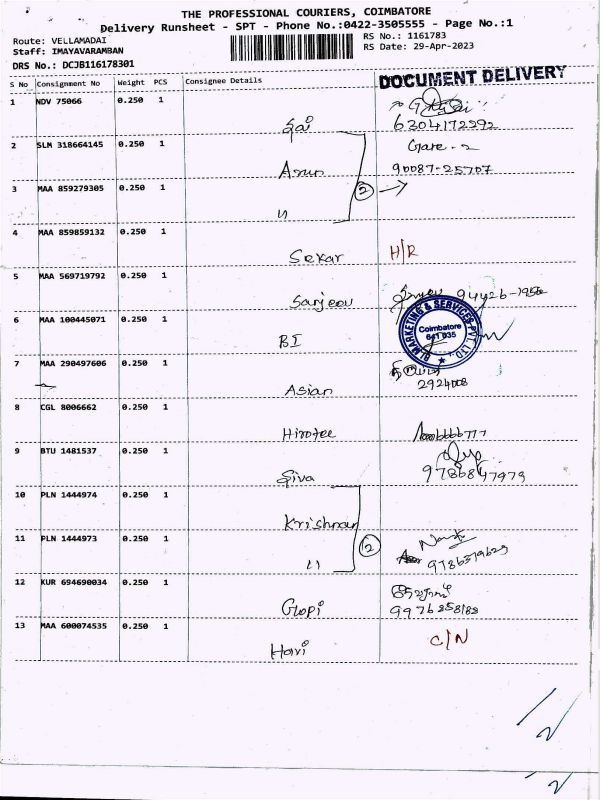 THE PROFESSIONAL COURIERS, COIMBATORE
Delivery Runsheet - SPT - Phone No.:0422-3505555 - Page No.:1
Route: VELLAMADAI
RS No.: 1161783
Staff: IMAYAVARAMBAN
RS Date: 29-Apr-2023
DRS No.: DCJB116178301
S No Consignment No Weight PCS Consignee Details
DOCUMENT DELIVERY
1 NDV 75066 0.250 1
6304172292
2 SLM 318664145 0.250 1 Arun
Gate - 2
90087-25707
3 MAA 859279305 0.250 1 "
2
4 MAA 859859132 0.250 1 Sekar H/R
5 MAA 569719792 0.250 1 Sanjeev
6 MAA 100445071 0.250 1 BI
BI MARKETING & SERVICES PVT. LTD.
Coimbatore
641 035
7 MAA 290497606 0.250 1 Asian
2924008
8 CGL 8006662 0.250 1 Hirotec
9 BTU 1481537 0.250 1 Siva
9786847979
10 PLN 1444974 0.250 1 Krishnan
11 PLN 1444973 0.250 1 "
2
9786379629
12 KUR 694690034 0.250 1 Gopi
9976858188
13 MAA 600074535 0.250 1 Hari C/N